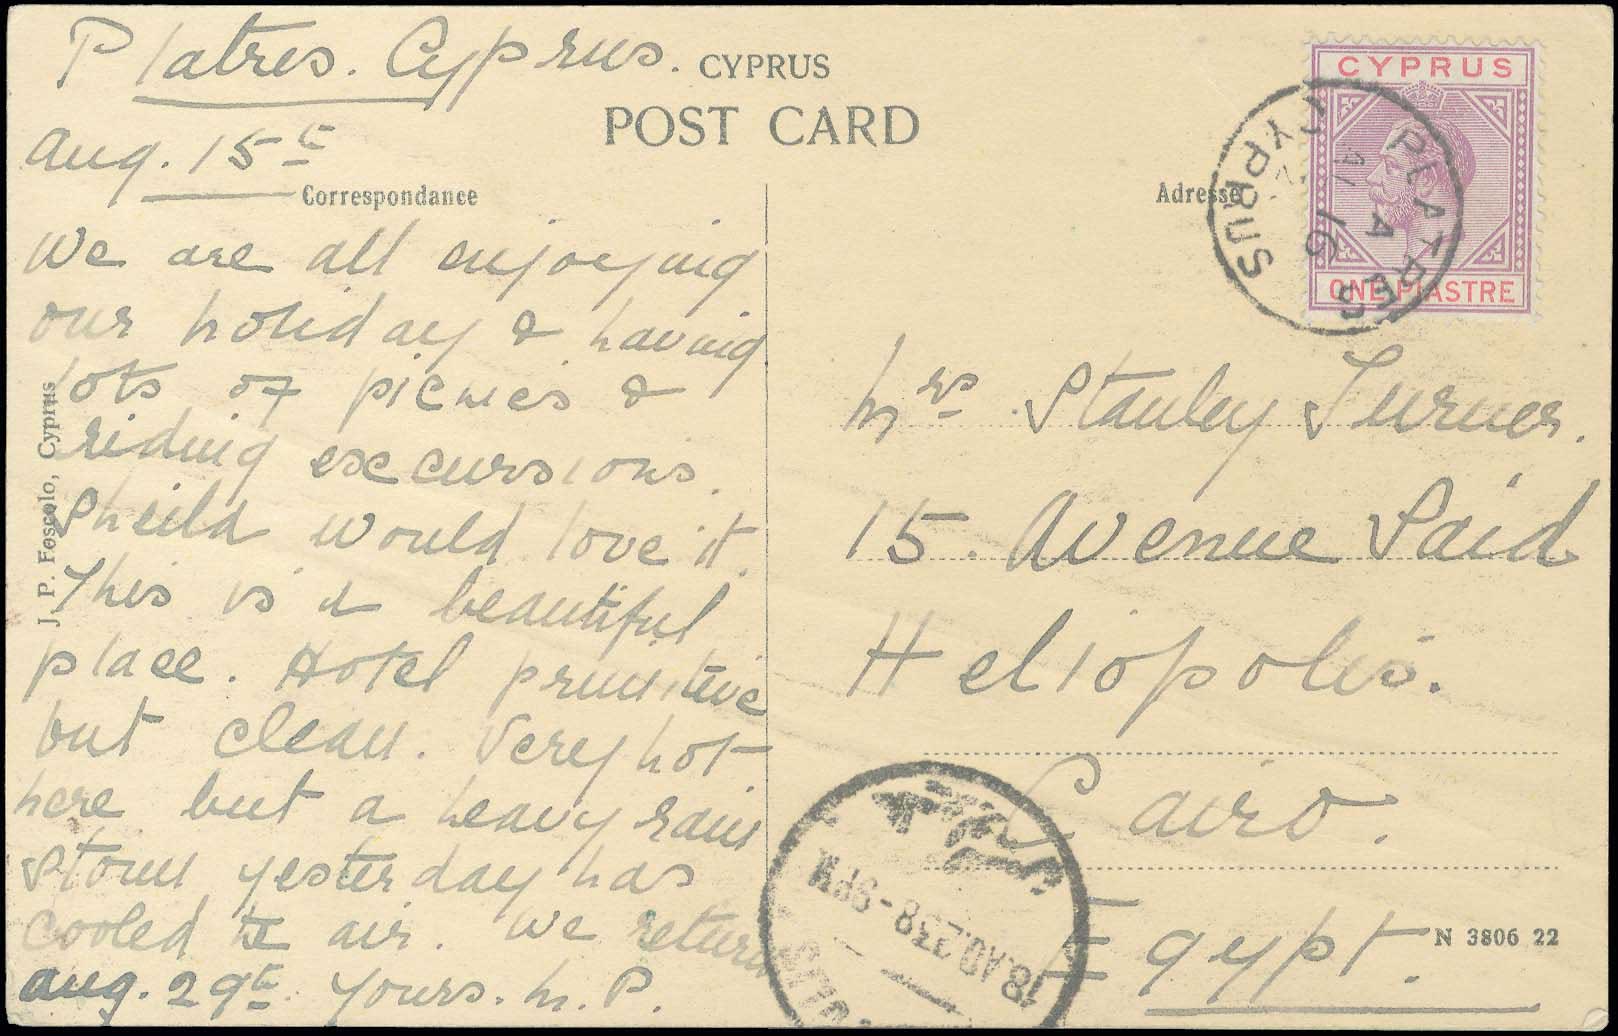 Platres. Cyprus.
Aug. 15th
CYPRUS
POST CARD
Correspondance
Adresse
We are all enjoying
our holiday & having
lots of picnics &
riding excursions.
Sheila would love it.
This is a beautiful
place. Hotel primitive
but clean. Very hot
here but a heavy rain
storm yesterday has
cooled the air. We return
Aug. 29th. Yours. M. P.
J. P. Foscolo, Cyprus
CYPRUS
ONE PIASTRE
PLATRES
CYPRUS
Mrs Stanley Turner.
15. Avenue Said
Heliopolis.
Cairo.
Egypt.
N 3806 22